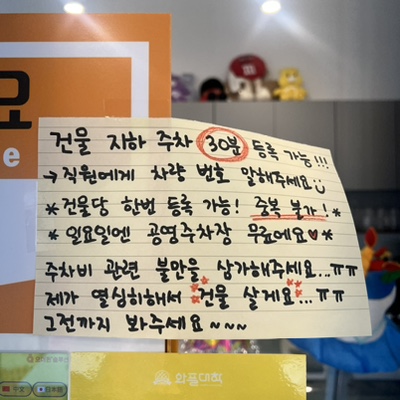 모
e
건물 지하 주차 30분 등록 가능!!!
→ 직원에게 차량 번호 말해주세요
*건물당 한번 등록 가능! 중복 불가!*
* 일요일엔 공영주차장 무료에요♥*
주차비 관련 불만을 삼가해주세요...ㅠㅠ
제가 열심히해서 건물 살게요...ㅠㅠ
그전까지 봐주세요~~~
中文
日本語
와플대학